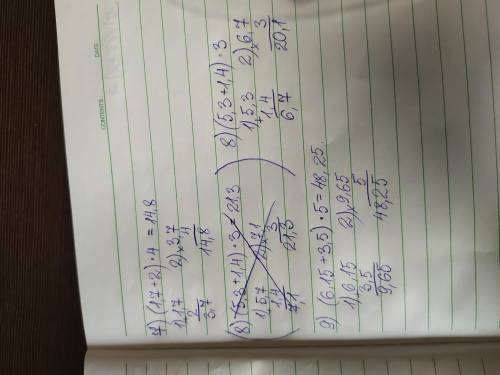 CONTENTS
DATE:
7) (1,7+2)·4 = 14,8
1) 1,7 2) × 3,7
+ 2 4
3,7 14,8
(8) (5,3+1,4)·3 = 21,3
1) 5,7 2) × 7,1
1,4 3
7,1 21,3
8) (5,3+1,4)·3
1) 5,3 2) × 6,7
+ 1,4 3
6,7 20,1
9) (6,15+3,5)·5=48,25.
1) 6,15 2) × 9,65
3,5 5
9,65 48,25